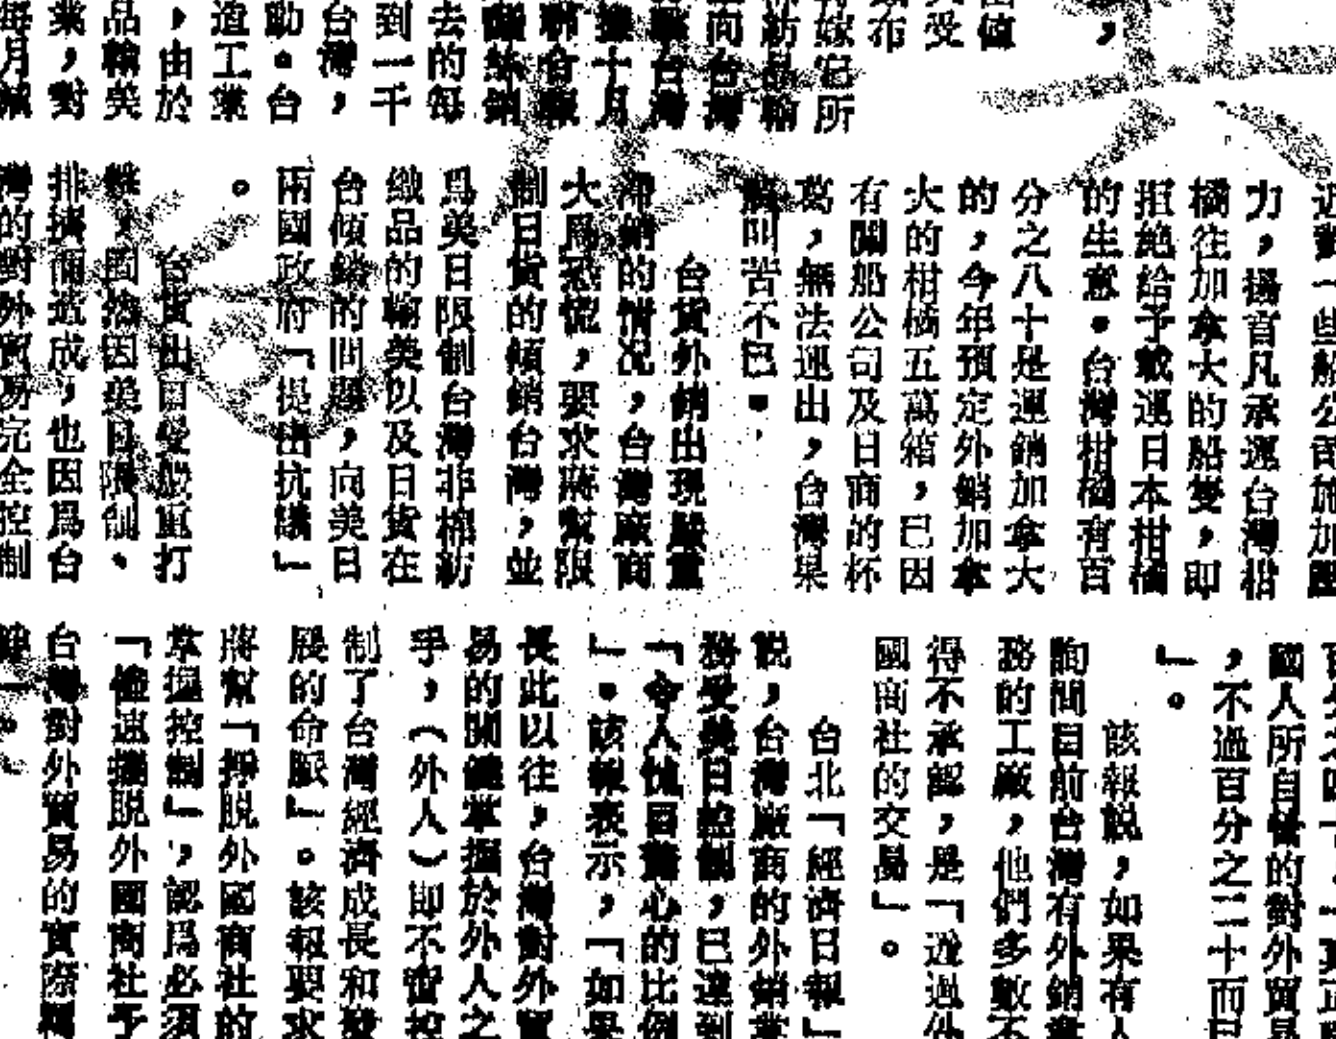 出值
受
布
嫁因所
紡品輸
向台灣
擊台灣
據十月
聯合報
去的每
到一千
台灣，
勵。台
造工業
，由於
品輸美
業，對
每月減
近數一些船公司施加壓
力，揚言凡承運台灣柑
橘往加拿大的船隻，即
拒絕給予載運日本柑橘
的生意。台灣柑橘有百
分之八十是運銷加拿大
的，今年預定外銷加拿
大的柑橘五萬箱，已因
有關船公司及日商的杯
葛，無法運出，台灣果
農叫苦不已。
台貨外銷出現嚴重
滯銷的情況，台灣廠商
大爲恐慌，要求蔣幫限
制日貨的傾銷台灣，並
爲美日限制台灣非棉紡
織品的輸美以及日貨在
台傾銷的問題，向美日
兩國政府「提出抗議」
。
台貨出口受嚴重打
擊，固然因美日限制、
排擠而造成，也因爲台
灣的對外貿易完全控制
國人所自誇的對外貿易
，不過百分之二十而已
」。
該報說，如果有人
詢問目前台灣有外銷業
務的工廠，他們多數不
得不承認，是「透過外
國商社的交易」。
台北「經濟日報」
說，台灣廠商的外銷業
務受美日控制，已達到
「令人怵目驚心的比例
」。該報表示，「如果
長此以往，台灣對外貿
易的關鍵掌握於外人之
手，（外人）即不啻控
制了台灣經濟成長和發
展的命脈」。該報要求
蔣幫「掙脫外國商社的
掌握控制」，認爲必須
「儘速擺脫外國商社予
台灣對外貿易的實際獨